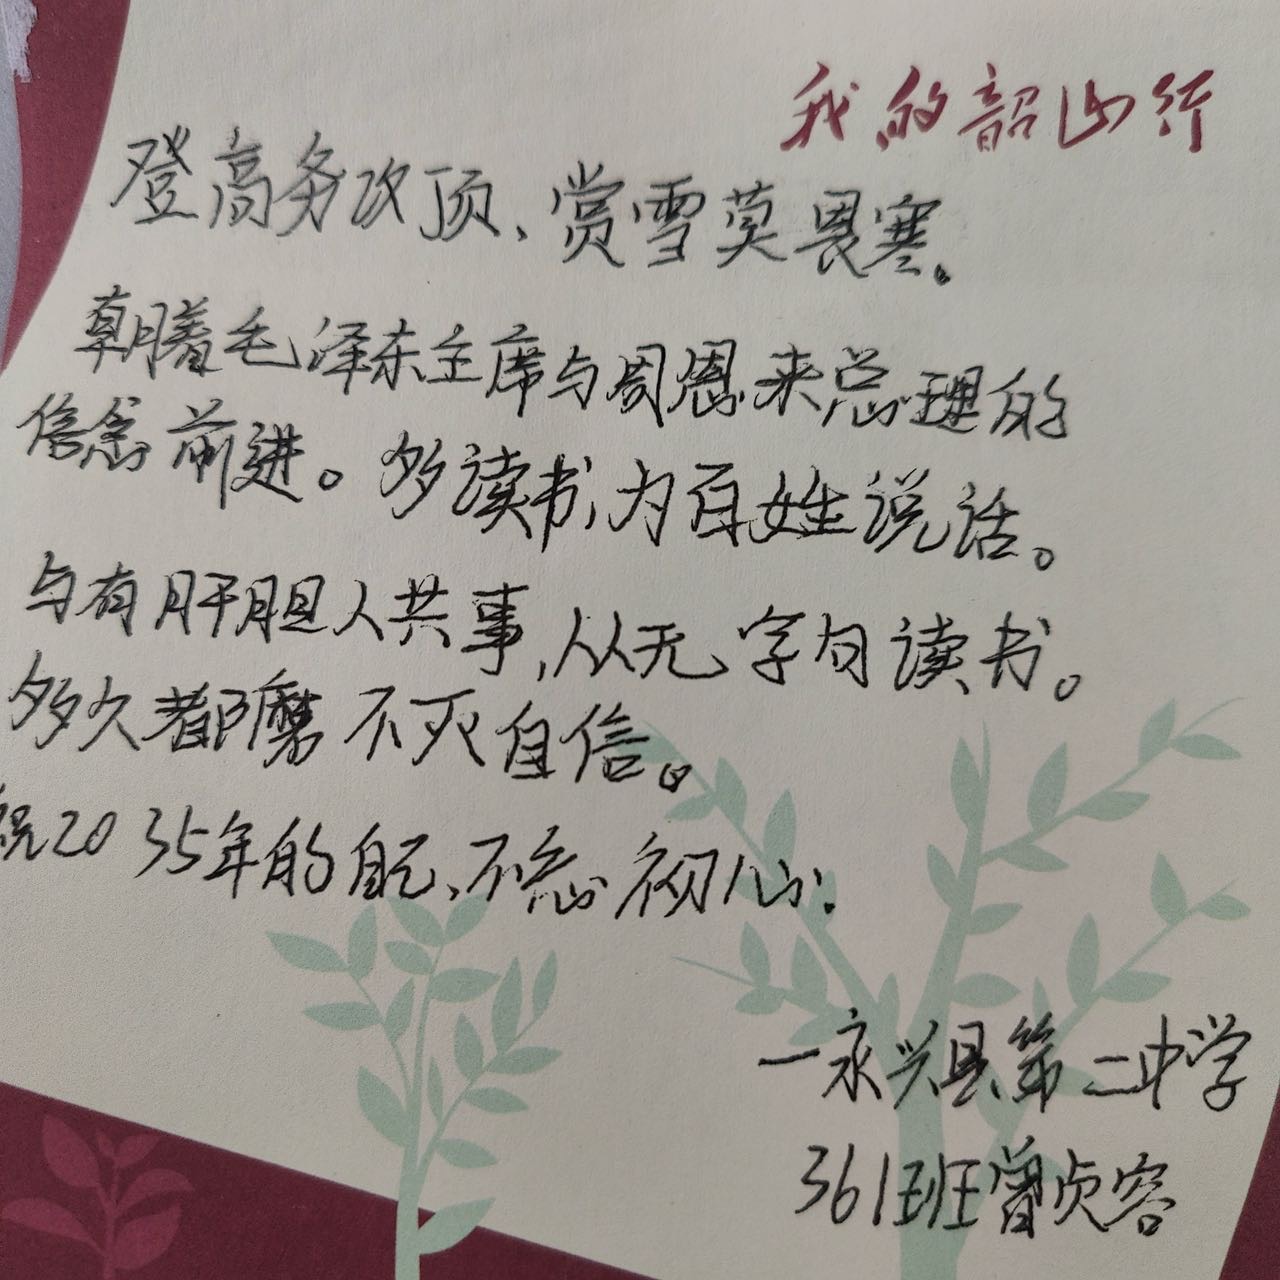 我的韶山行
登高务攻顶、赏雪莫畏寒。
朝着毛泽东主席与周恩来总理的
信念前进。多读书,为百姓说话。
与有肝胆人共事,从无字句读书。
多久都磨不灭自信。
祝2035年的自己、不忘初心:
一永兴县第二中学
361班曾贞容